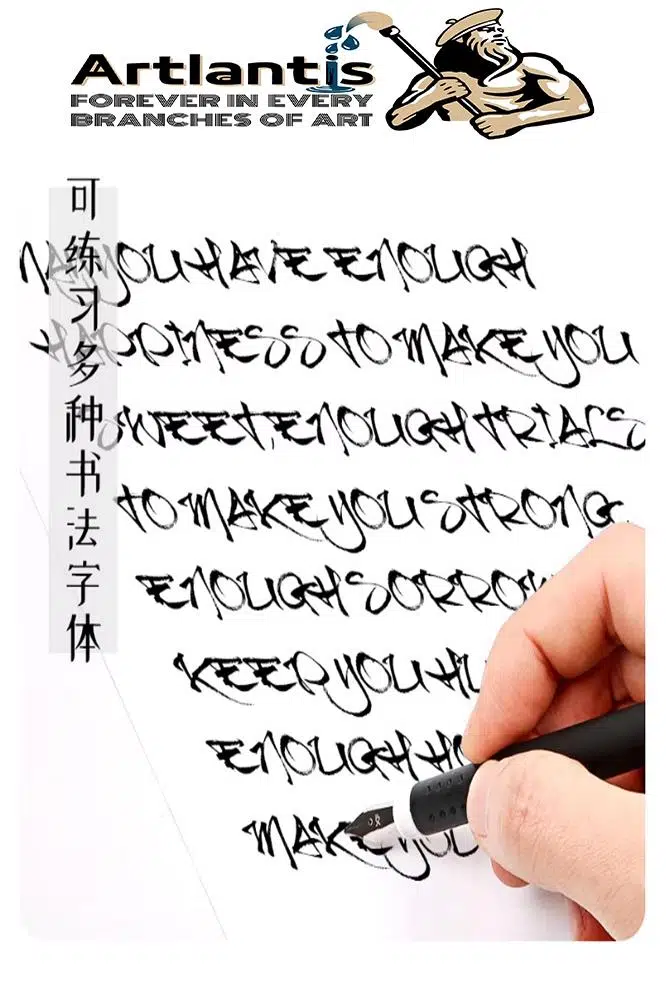 Artlantis
FOREVER IN EVERY
BRANCHES OF ART
可练习多种书法字体
MAY YOU HAVE ENOUGH
HAPPINESS TO MAKE YOU
SWEET, ENOUGH TRIALS
TO MAKE YOU STRONG,
ENOUGH SORROW
KEEP YOU HU
ENOUGH HO
MAKE YOU